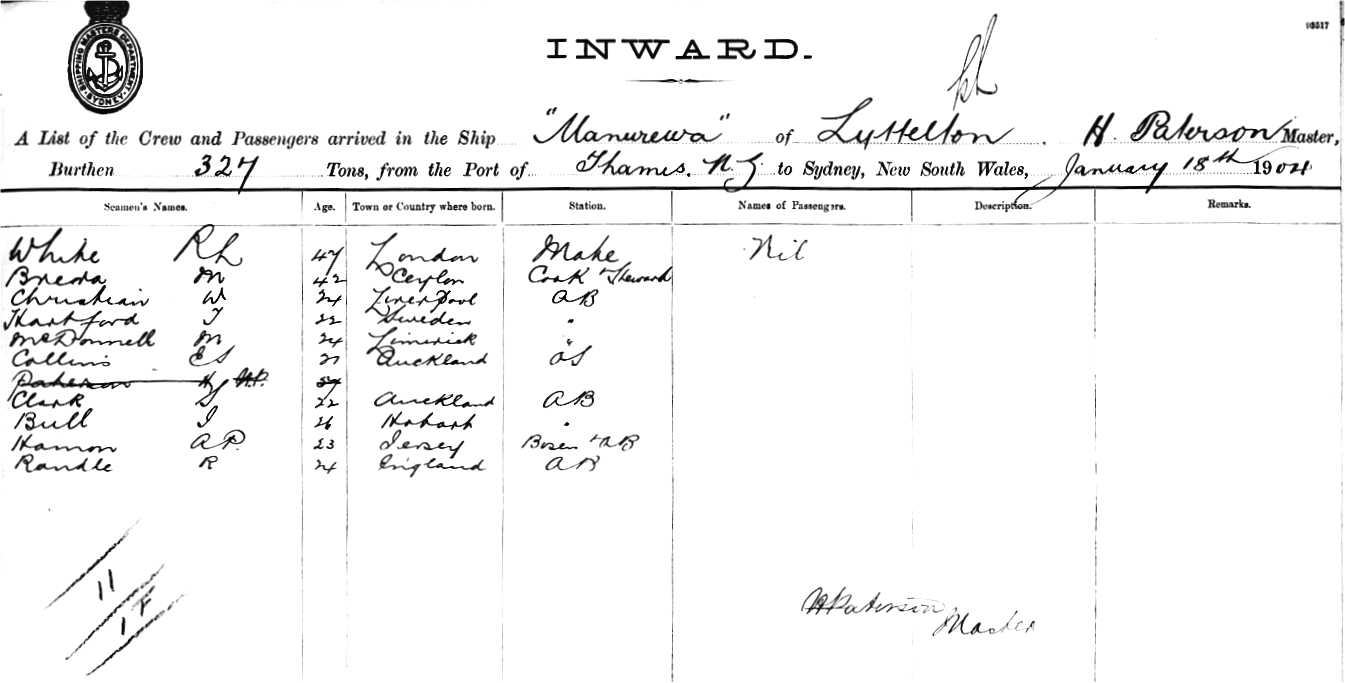 SHIPPING MASTERS DEPARTMENT SYDNEY
10517
INWARD.
A List of the Crew and Passengers arrived in the Ship "Manurewa" of Lyttelton. H. Paterson Master,
Burthen 327 Tons, from the Port of Thames. N.Z to Sydney, New South Wales, January 18th 1904
Seamen's Names. Age. Town or Country where born. Station. Names of Passengers. Description. Remarks.
White 47 London Mate Nil
M 42 Ceylon Cook & Steward
Christian W 24 Liverpool AB
Hartford T 22 Sweden "
McDonnell M 24 Limerick "
Collins ES 21 Auckland OS
Paterson H H.P. 57
Clark 22 Auckland AB
Bull I 26 Hobart "
Hamon A P. 23 Jersey Bosen & AB
Randle R 24 England AB
11
1
HPaterson
Master